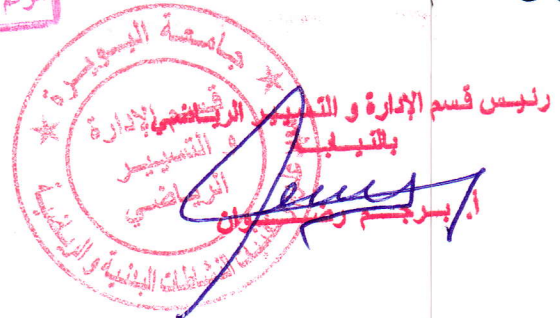 جامعة البويرة
قسم الإدارة
و التسيير
الرياضي
النشاطات البدنية و الرياضية
رئيس قسم الإدارة و التسيير الرياضي
بالنيابة
أ. برجم رضوان